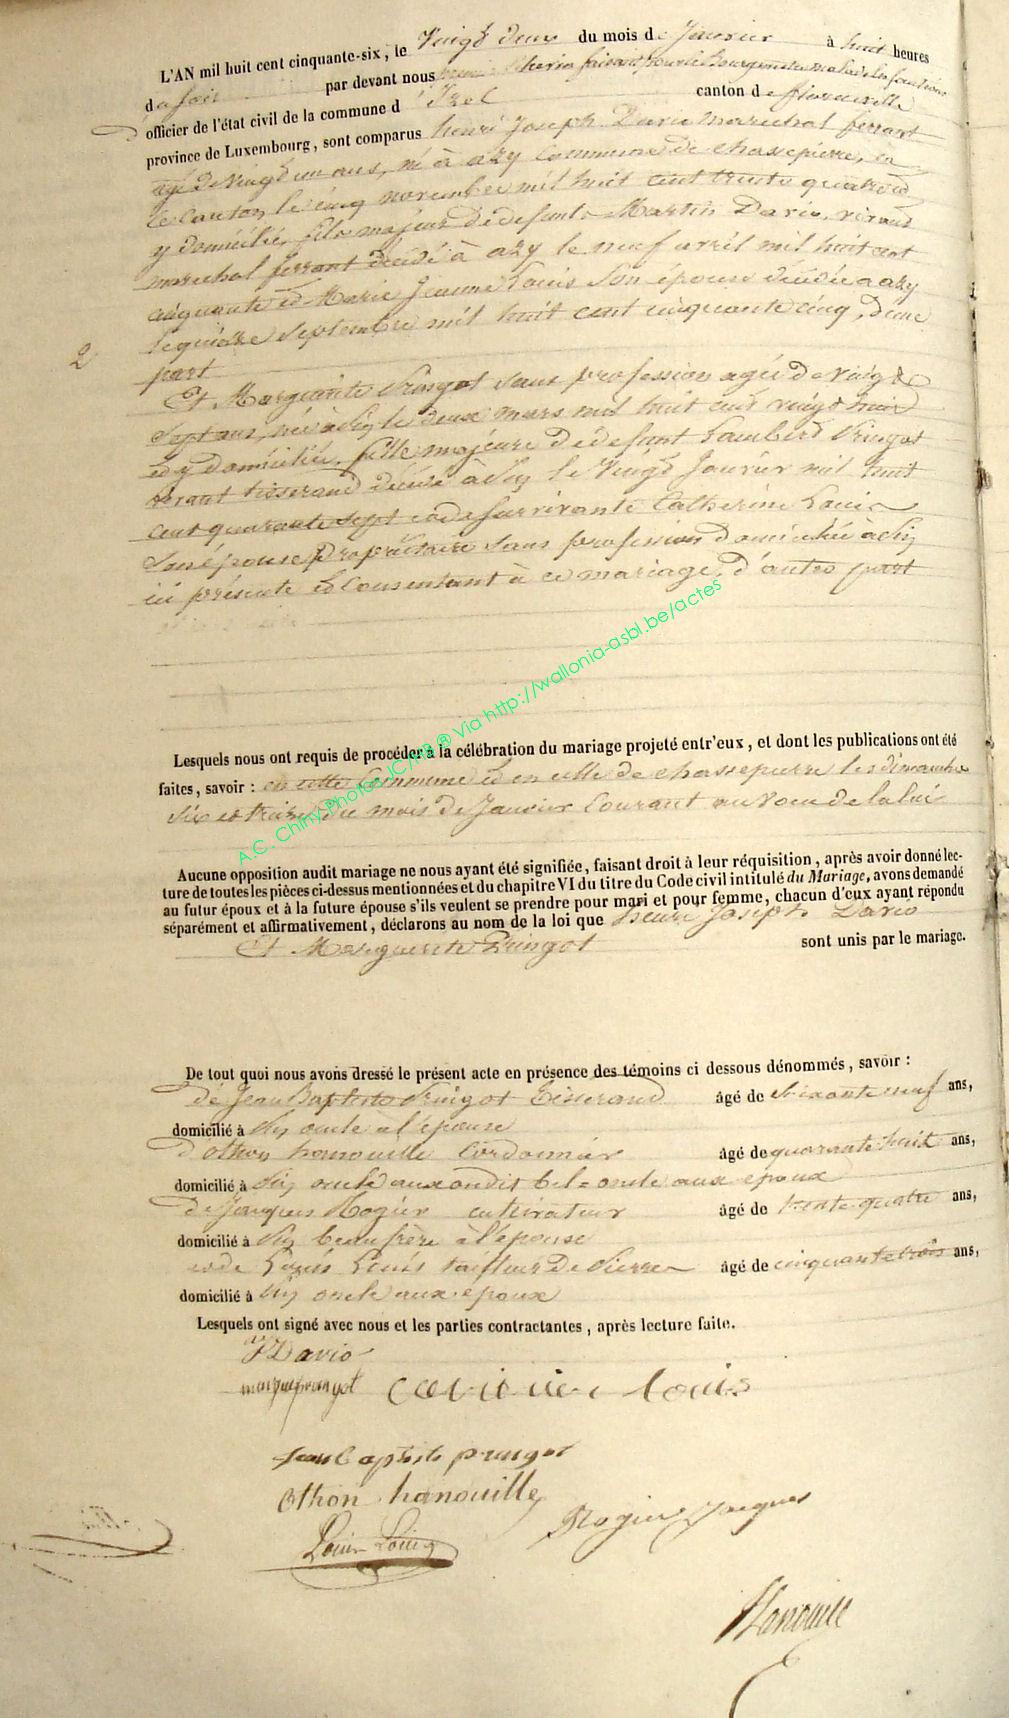 L'AN mil huit cent cinquante-six, le Vingt deux du mois de Janvier à huit heures
du soir par devant nous échevin faisant pour le Bourgmestre malade les fonctions
d'officier de l'état civil de la commune d'Izel canton de florenville
province de Luxembourg, sont comparus henri Joseph Dario marechal ferrant
agé de vingt un ans, né à azy commune de chassepierre, en
le canton, le cinq novembre mil huit cent trente quatre et
y domicilié, fils majeur de defunts Martin Dario, vivant
marechal ferrant décédé à azy le neuf avril mil huit cent
cinquante et Marie Jeanne Louis son épouse décédée a azy
le quinze Septembre mil huit cent cinquante cinq, d'une
part
2
Et Marguerite Pringot sans profession agée de vingt
Sept ans, née à le deux mars mil huit cent vingt huit
et y domiciliée, fille majeure de defunt Lambert Pringot
vivant tisserand décédé à le Vingt Janvier mil huit
cent quarante sept et de survivante Catherine Louis
son épouse propriétaire sans profession domiciliée à
ici présente et Consentant à ce mariage, d'autre part
A.C. Chiny Photos JC/RB ® Via http://wallonia-asbl.be/actes
Lesquels nous ont requis de procéder à la célébration du mariage projeté entr'eux, et dont les publications ont été
faites, savoir : en cette Commune et en celle de chassepierre les dimanche
Six et treize du mois de Janvier Courant au voeu de la loi
Aucune opposition audit mariage ne nous ayant été signifiée, faisant droit à leur réquisition, après avoir donné lec-
ture de toutes les pièces ci-dessus mentionnées et du chapitre VI du titre du Code civil intitulé du Mariage, avons demandé
au futur époux et à la future épouse s'ils veulent se prendre pour mari et pour femme, chacun d'eux ayant répondu
séparément et affirmativement, déclarons au nom de la loi que henri Joseph Dario
Et Marguerite Pringot sont unis par le mariage.
De tout quoi nous avons dressé le présent acte en présence des témoins ci dessous dénommés, savoir :
de Jean Baptiste Pringot Tisserand âgé de soixante neuf ans,
domicilié à oncle a l'épouse
d'othon hanouille Cordonnier âgé de quarante huit ans,
domicilié à oncle aux bel-oncle aux epoux
de Jacques Rogier cultivateur âgé de trente quatre ans,
domicilié à beau frère à l'épouse
et de Louis Louis tailleur de Pierre âgé de cinquante trois ans,
domicilié à oncle aux époux
Lesquels ont signé avec nous et les parties contractantes, après lecture faite.
Dario
margte pringot Caterine Louis
Jean baptiste pringot
othon hanouille
Louis Louis Rogier Jacques
Hanouille